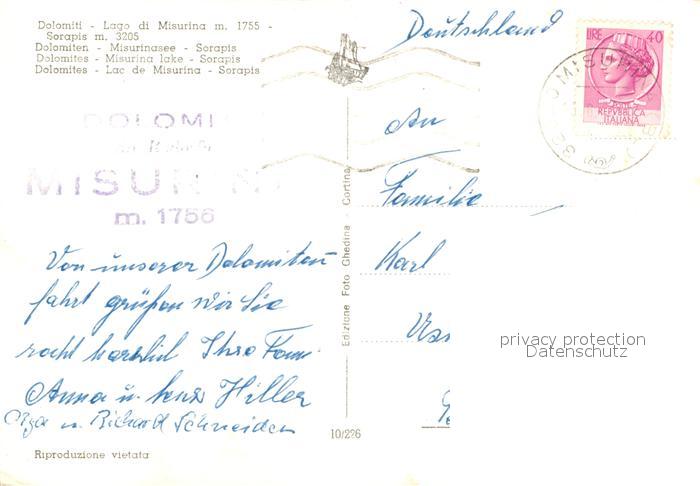 Dolomiti - Lago di Misurina m. 1755 -
Sorapis m. 3205
Dolomiten - Misurinasee - Sorapis
Dolomites - Misurina lake - Sorapis
Dolomites - Lac de Misurina - Sorapis
Deutschland
LIRE 40
REPVBBLICA
ITALIANA
MISURINA
DOLOMI
MISURIN
m. 1756
An
Familie
Karl
Von unserer Dolomiten
fahrt grüßen wir Sie
recht herzlich Ihre Fam.
Anna u. Hiller
Olga u. Richard Schneider
Edizione Foto Ghedina - Cortina
10/226
Riproduzione vietata
privacy protection
Datenschutz